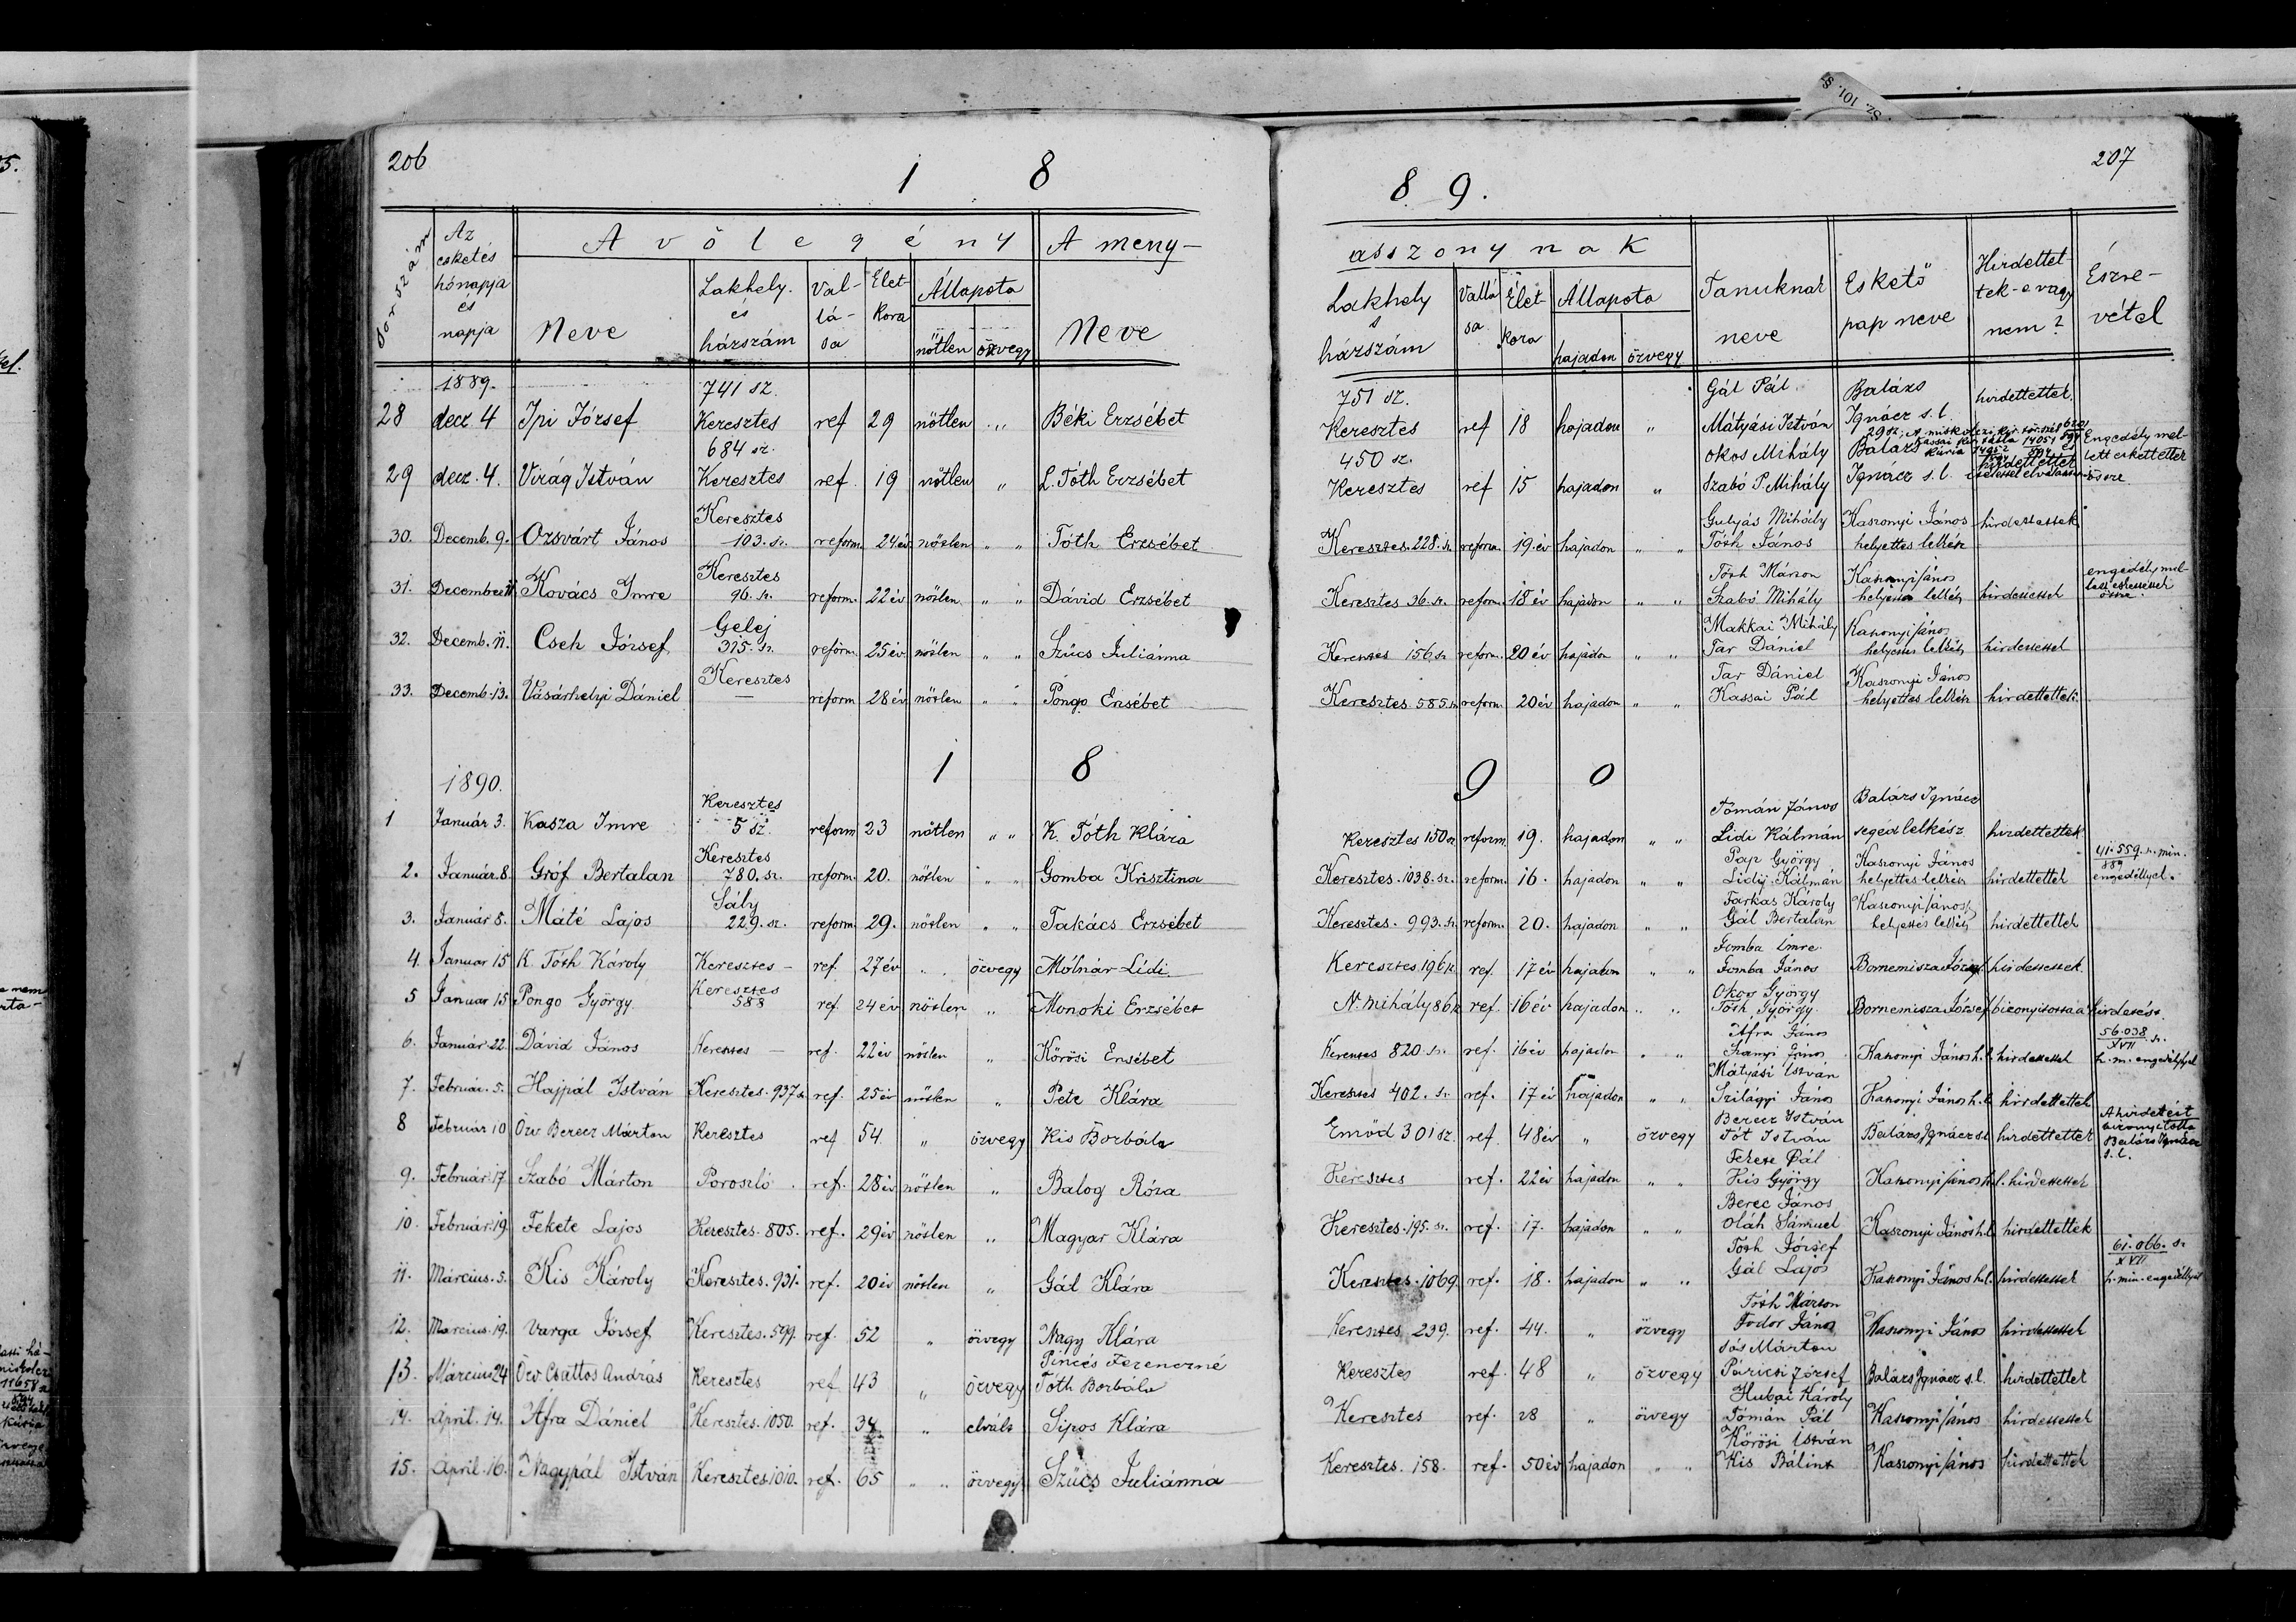 206
1 8
8 9.
207
Sz. 101. Sz.
Sorszám
Az esketés hónapja és napja
A vőlegény
A meny-
asszonynak
Neve
Lakhely és házszám
Vallása
Életkora
Állapota
nőtlen
özvegy
Neve
Lakhely s házszám
Vallása
Életkora
Állapota
hajadon
özvegy
Tanuknak neve
Eskető pap neve
Hirdettettek-e vagy nem?
Észrevétel
1889.
28 decz 4 Ipi József 741 sz. Keresztes ref 29 nőtlen „ Béki Erzsébet 751 sz. Keresztes ref 18 hajadon „ Gál Pál Mátyási István Balázs Ignácz s.l. hirdettettek
29 decz. 4. Virág István 684 sz. Keresztes ref. 19 nőtlen „ L. Tóth Erzsébet 450 sz. Keresztes ref 15 hajadon „ Okos Mihály Szabó P. Mihály Balázs Ignácz s.l. hirdettettek Engedély mellett eskettettek össze
30. Decemb. 9. Ozsvárt János Keresztes 103. sz. reform. 24 év nőtlen „ „ Tóth Erzsébet Keresztes. 228. sz. reform. 19. év hajadon „ „ Gulyás Mihály Tóth János Kaszonyi János helyettes lelkész hirdettettek
31. December 11. Kovács Imre Keresztes 96. sz. reform. 22 év nőtlen „ „ Dávid Erzsébet Keresztes 36. sz. reform. 18 év hajadon „ „ Tóth Márton Szabó Mihály Kaszonyi János helyettes lelkész hirdettettek engedély mellett eskettettek össze
32. Decemb. 11. Cseh József Gelej 315. sz. reform. 25 év nőtlen „ „ Szűcs Juliánna Keresztes 156 sz. reform. 20 év hajadon „ „ Makkai Mihály Tar Dániel Kaszonyi János helyettes lelkész hirdettettek
33. Decemb. 13. Vásárhelyi Dániel Keresztes — reform 28 év nőtlen „ „ Pongo Erzsébet Keresztes. 585. sz. reform. 20 év hajadon „ „ Tar Dániel Kassai Pál Kaszonyi János helyettes lelkész hirdettettek
1 8 9 0
1890.
1 Január 3. Kasza Imre Keresztes 5 sz. reform 23 nőtlen „ „ K. Tóth Klára Keresztes 150 sz. reform. 19. hajadon „ „ Tómán János Lidi Kálmán Balázs Ignácz segédlelkész hirdettettek
2. Január. 8. Gróf Bertalan Keresztes 780. sz. reform. 20. nőtlen „ „ Gomba Krisztina Keresztes. 1038. sz. reform. 16. hajadon „ „ Pap György Lidij Kálmán Kaszonyi János helyettes lelkész hirdettettek 41.559. sz. min. 889 engedéllyel.
3. Január 8. Máté Lajos Sály 229. sz. reform. 29. nőtlen „ „ Takács Erzsébet Keresztes. 993. sz. reform. 20. hajadon „ „ Farkas Károly Gál Bertalan Kaszonyi János helyettes lelkész hirdettettek
4. Január 15 K. Tóth Károly Keresztes — ref. 27 év „ özvegy Mólnár Lidi Keresztes. 196 sz. ref. 17 év hajadon „ „ Gomba Imre Gomba János Bornemisza József hirdettettek.
5 Január 15 Pongo György. Keresztes 588 ref. 24 év nőtlen „ Monoki Erzsébet N. mihály 86 sz ref. 16 év hajadon „ „ Okos György Tóth György. Bornemisza József bizonyította a hirdetést.
6. Január 22. Dávid János Keresztes — ref. 22 év nőtlen „ Kőrösi Erzsébet Keresztes 820. sz. ref. 16 év hajadon „ „ Afra János Szanyi János Kaszonyi János h. l. hirdettettek 56.038 sz. XVII h. m. engedéllyel
7. Február. 5. Hajpál István Keresztes. 937 sz. ref. 25 év nőtlen „ Pete Klára Keresztes 402. sz. ref. 17 év hajadon „ „ Mátyási István Szilágyi János Kaszonyi János h. l. hirdettettek
8 Február 10 Özv Berecz Márton Keresztes ref 54 „ özvegy Kis Borbála Emőd 301 sz. ref. 48 év „ özvegy Berecz István Tót István Balázs Ignácz s.l. hirdettettek A hirdetést bizonyította Balázs Ignácz s. l.
9. Február 17 Szabó Márton Poroszló ref. 28 év nőtlen „ Balog Róza Keresztes ref. 22 év hajadon „ „ Fekete Pál Kis György Kaszonyi János h. l. hirdettettek
10. Február 19. Fekete Lajos Keresztes. 805. ref. 29 év nőtlen „ Magyar Klára Keresztes. 195. sz. ref. 17. hajadon „ „ Berec János Oláh Sámuel Kaszonyi János h.l. hirdettettek
11. Március. 5. Kis Károly Keresztes. 931. ref. 20 év nőtlen „ Gál Klára Keresztes. 1069. ref. 18. hajadon „ „ Tóth József Gál Lajos Kaszonyi János h.l. hirdettettek 61.066. sz XVII h. min. engedéllyel
12. Március. 19. Varga József Keresztes. 599. ref. 52 „ özvegy Nagy Klára Keresztes. 239. ref. 44. „ özvegy Tóth Márton Fodor János Kaszonyi János hirdettettek
13. Március 24 Özv. Csattos András Keresztes ref. 43 „ özvegy Pinczés Ferenczné Tóth Borbála Keresztes ref. 48 „ özvegy Sós Márton Páricsi József Balázs Ignácz s.l. hirdettettek
14. April. 14. Afra Dániel Keresztes. 1050. ref. 34 „ elvált Sipos Klára Keresztes ref. 28 „ özvegy Hubai Károly Tómán Pál Kaszonyi János hirdettettek
15. April. 16. Nagypál István Keresztes 1010. ref. 65 „ „ özvegy Szűcs Juliánna Keresztes. 158. ref. 50 év hajadon „ „ Kőrösi István Kis Bálint Kaszonyi János hirdettettek